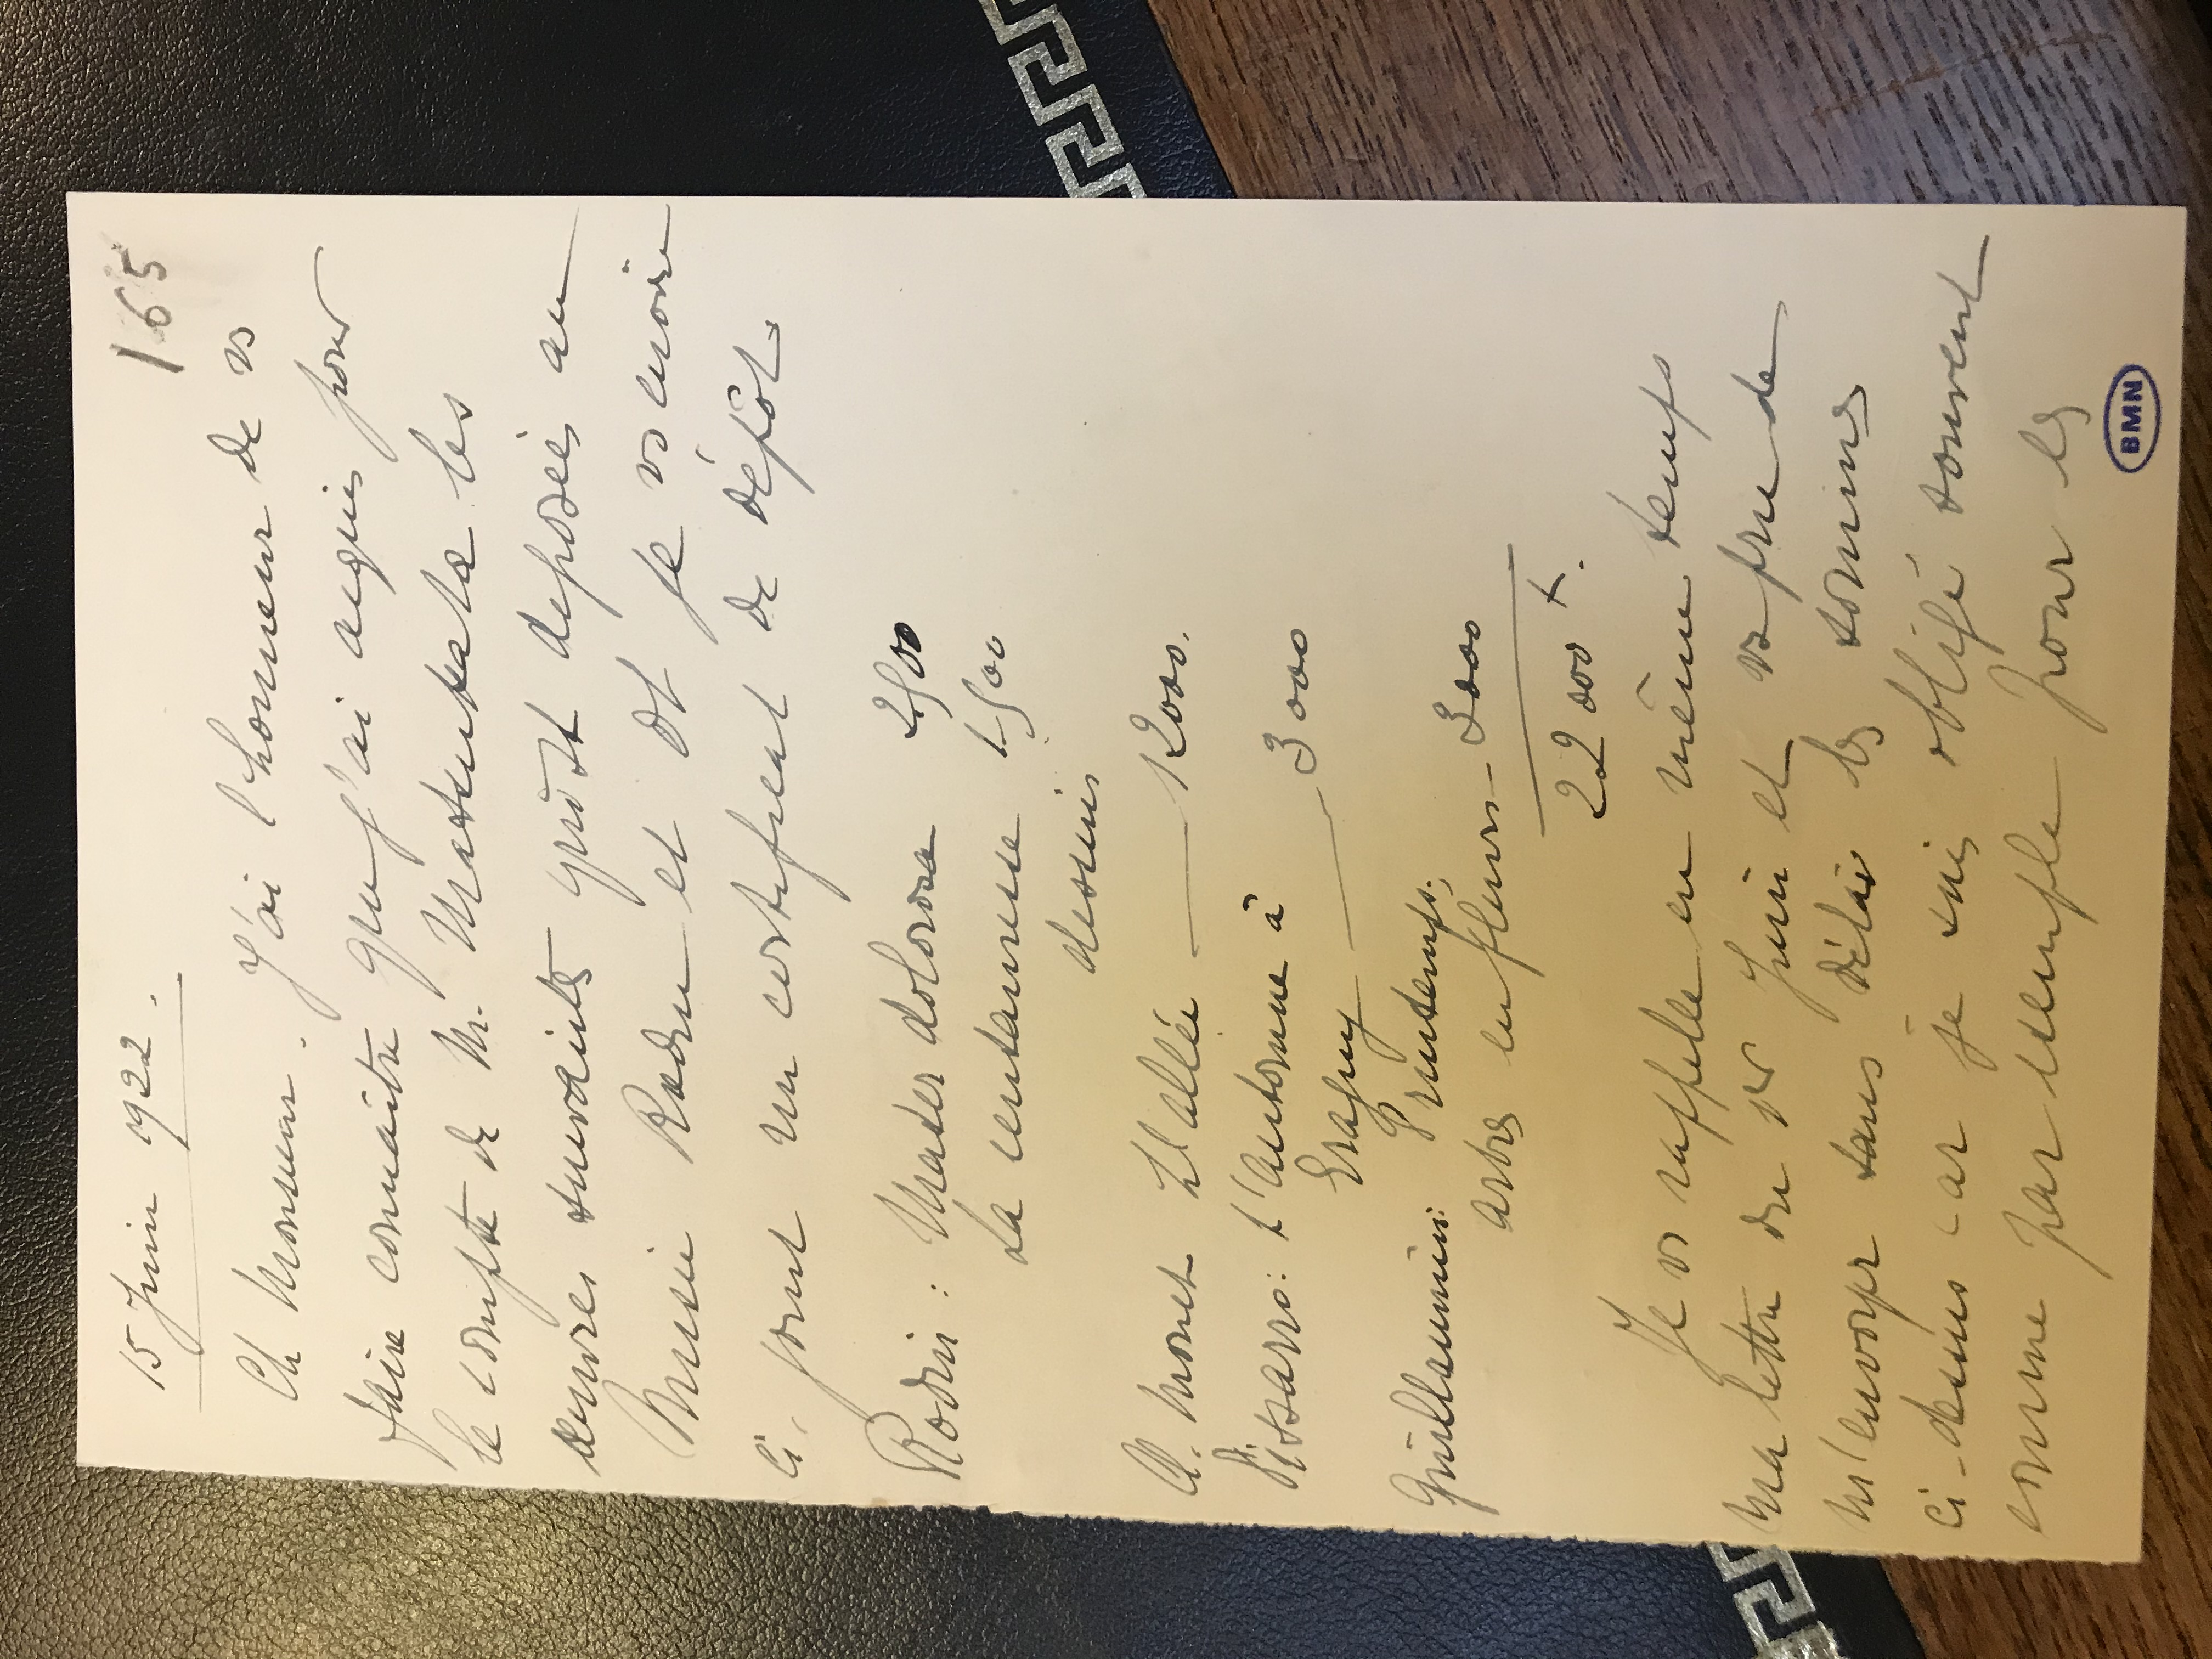 165
15 Juin 1922.
Ch Monsieur. J'ai l'honneur de vs
faire connaitre que j'ai acquis pour
le compte de M. Matsukata les
œuvres suivantes qui st deposées au
Musée Rodin et dt je vs envoie
ci-joint un certificat de dépôt.
Rodin: Mater dolorosa 2500
La centauresse 1500
dessins
Cl. Monet L'allée — 12000.
Pissarro: L'automne à
Eragny — 3000
Guillaumin: Printemps.
arbres en fleurs — 3000
22000 f.
Je vs rappelle en même temps
ma lettre du 1er Juin et vs prie de
m'envoyer sans délai les sommes
ci-dessus car je suis obligé souvent
comme par exemple pour les
BMN